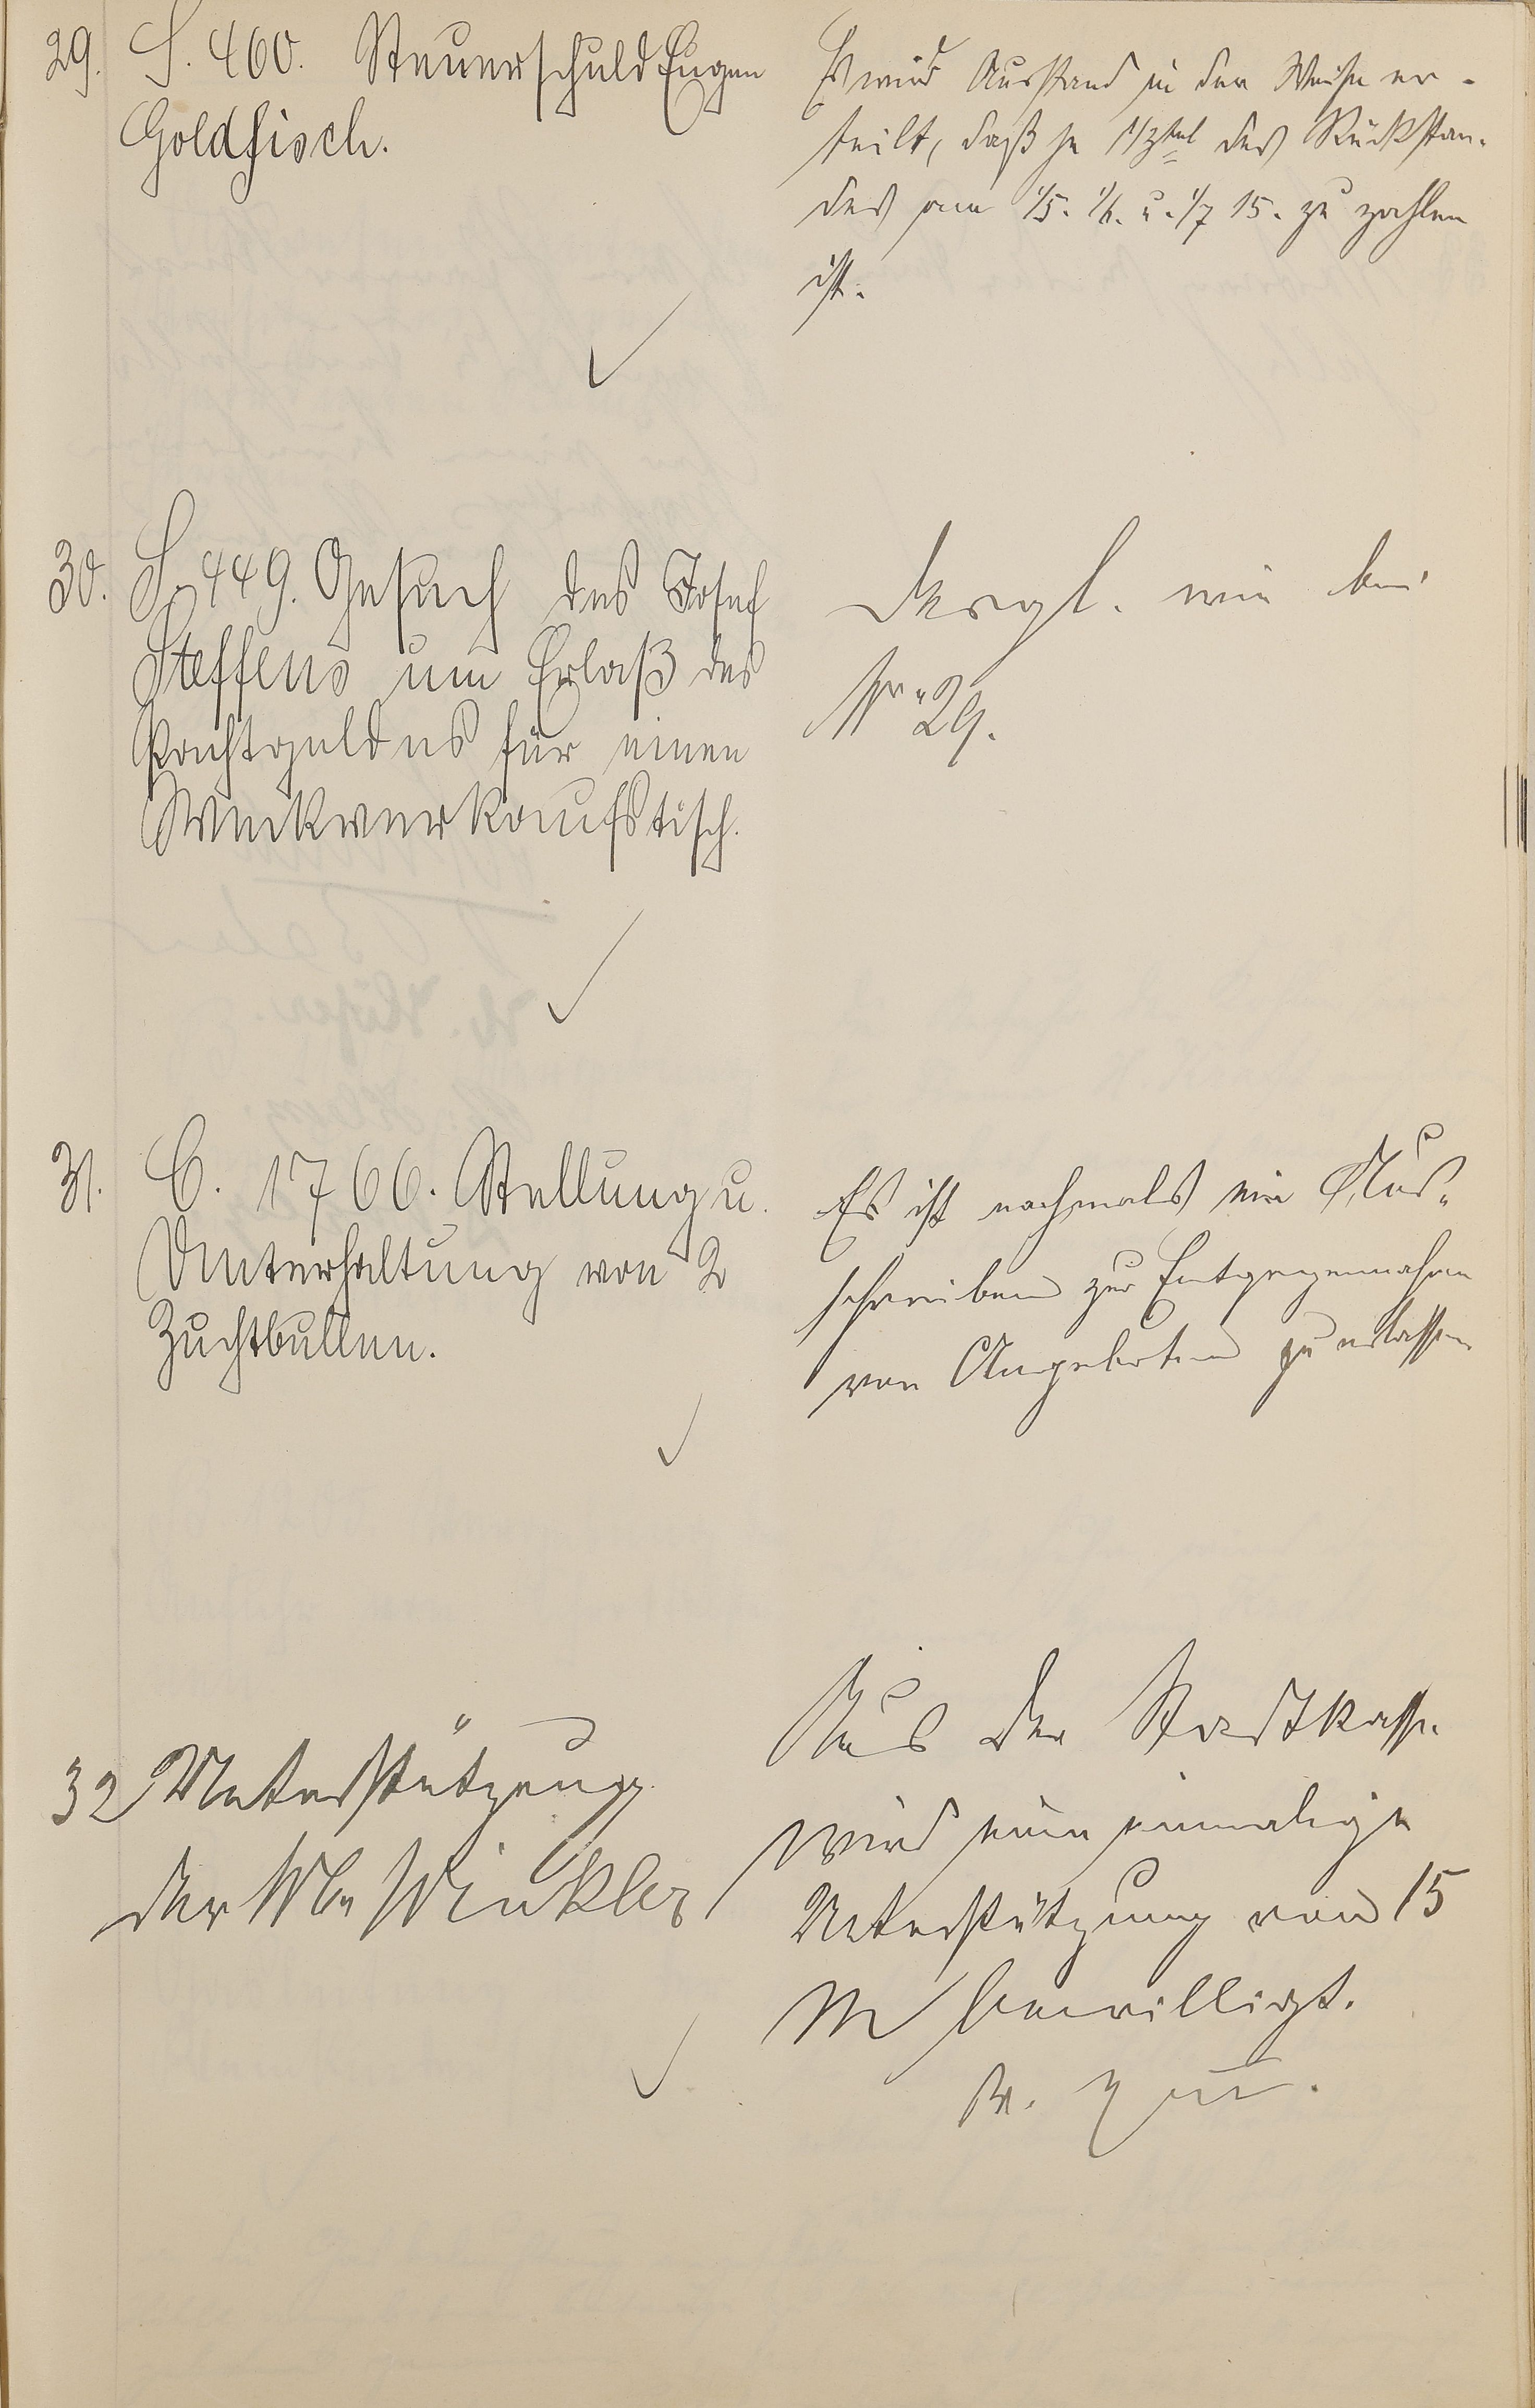 29. S. 460. Steuerschuld Eugen
Goldfisch.
Es wird Ausstand in der Weise er-
teilt, daß je 1/3tel des Rückstan-
des am 1/5. 1/6. u. 1/7 15. zu zahlen
ist.
30. S. 449. Gesuch des Josef
Steffens um Erlaß des
Pachtgeldes für einen
Weckverkaufstisch.
Desgl. wie bei
Nr. 29.
31. C. 1766. Stellung u.
Unterhaltung von 2
Zuchtbullen.
Es ist nochmals ein Aus-
schreiben zur Entgegennahme
von Angeboten zu erlassen
32 Unterstützung
der Ww Winkler
Aus der Stadtkasse
wird eine einmalige
Unterstützung von 15
M bewilligt.